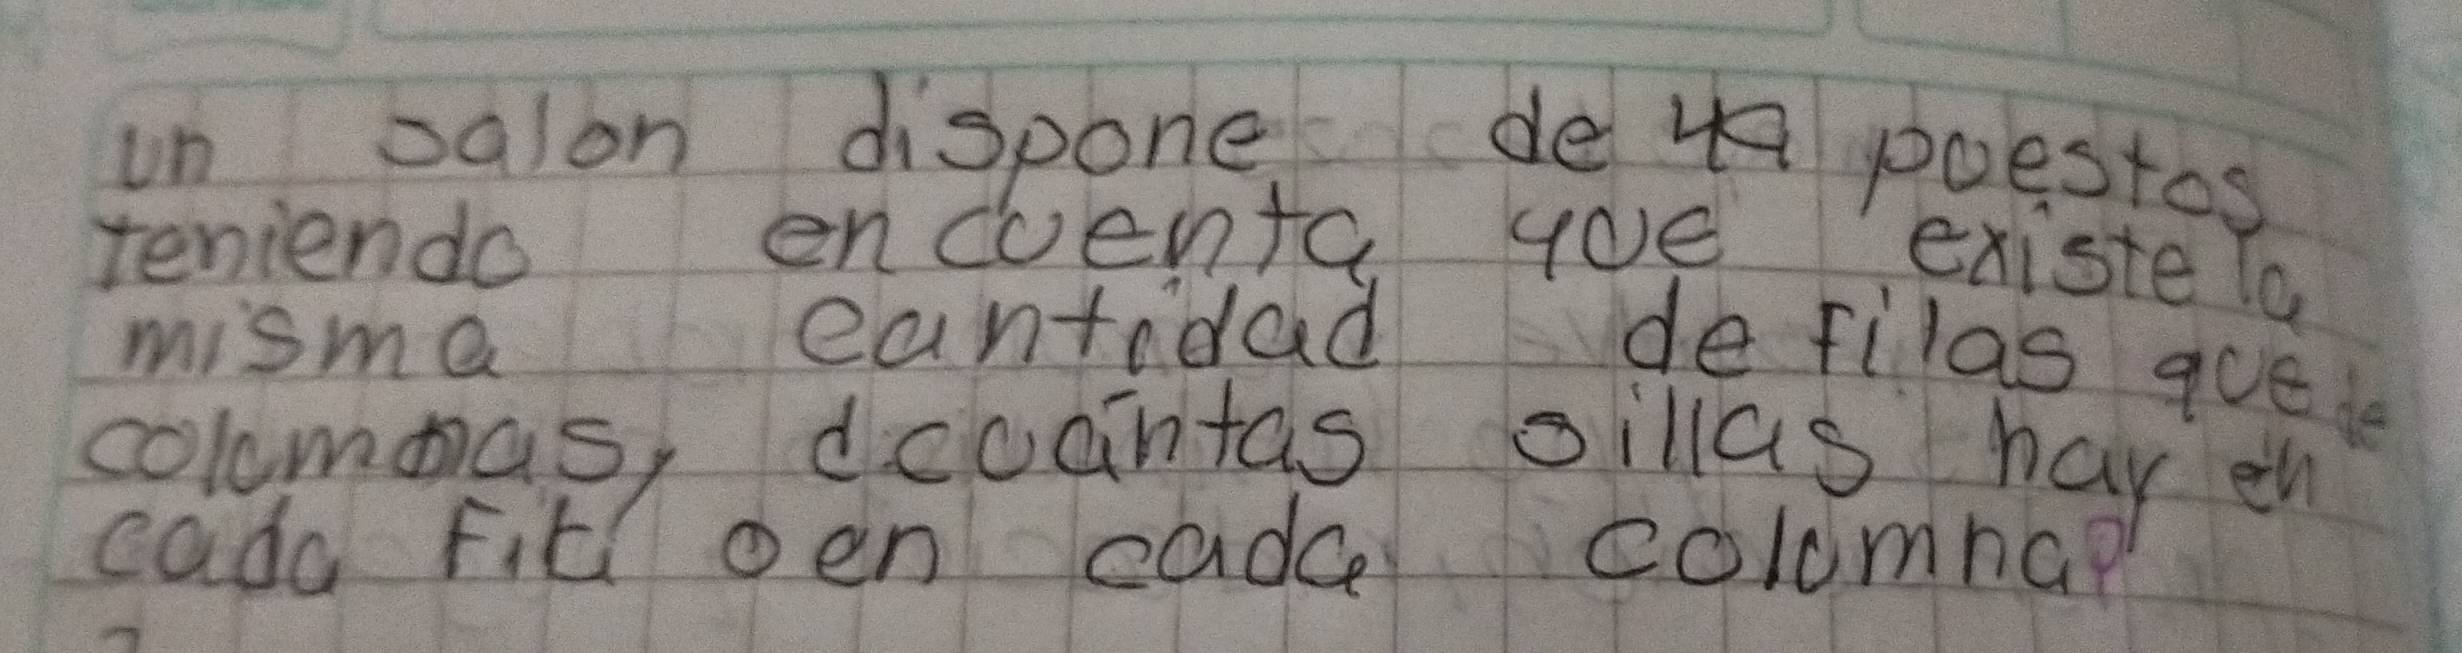 un salon dispone de 49 puestos
teniendo encuenta que existe la
misma cantidad de filas que de
columnas, ¿cuántas sillas hay en
cada fila o en cada columna?